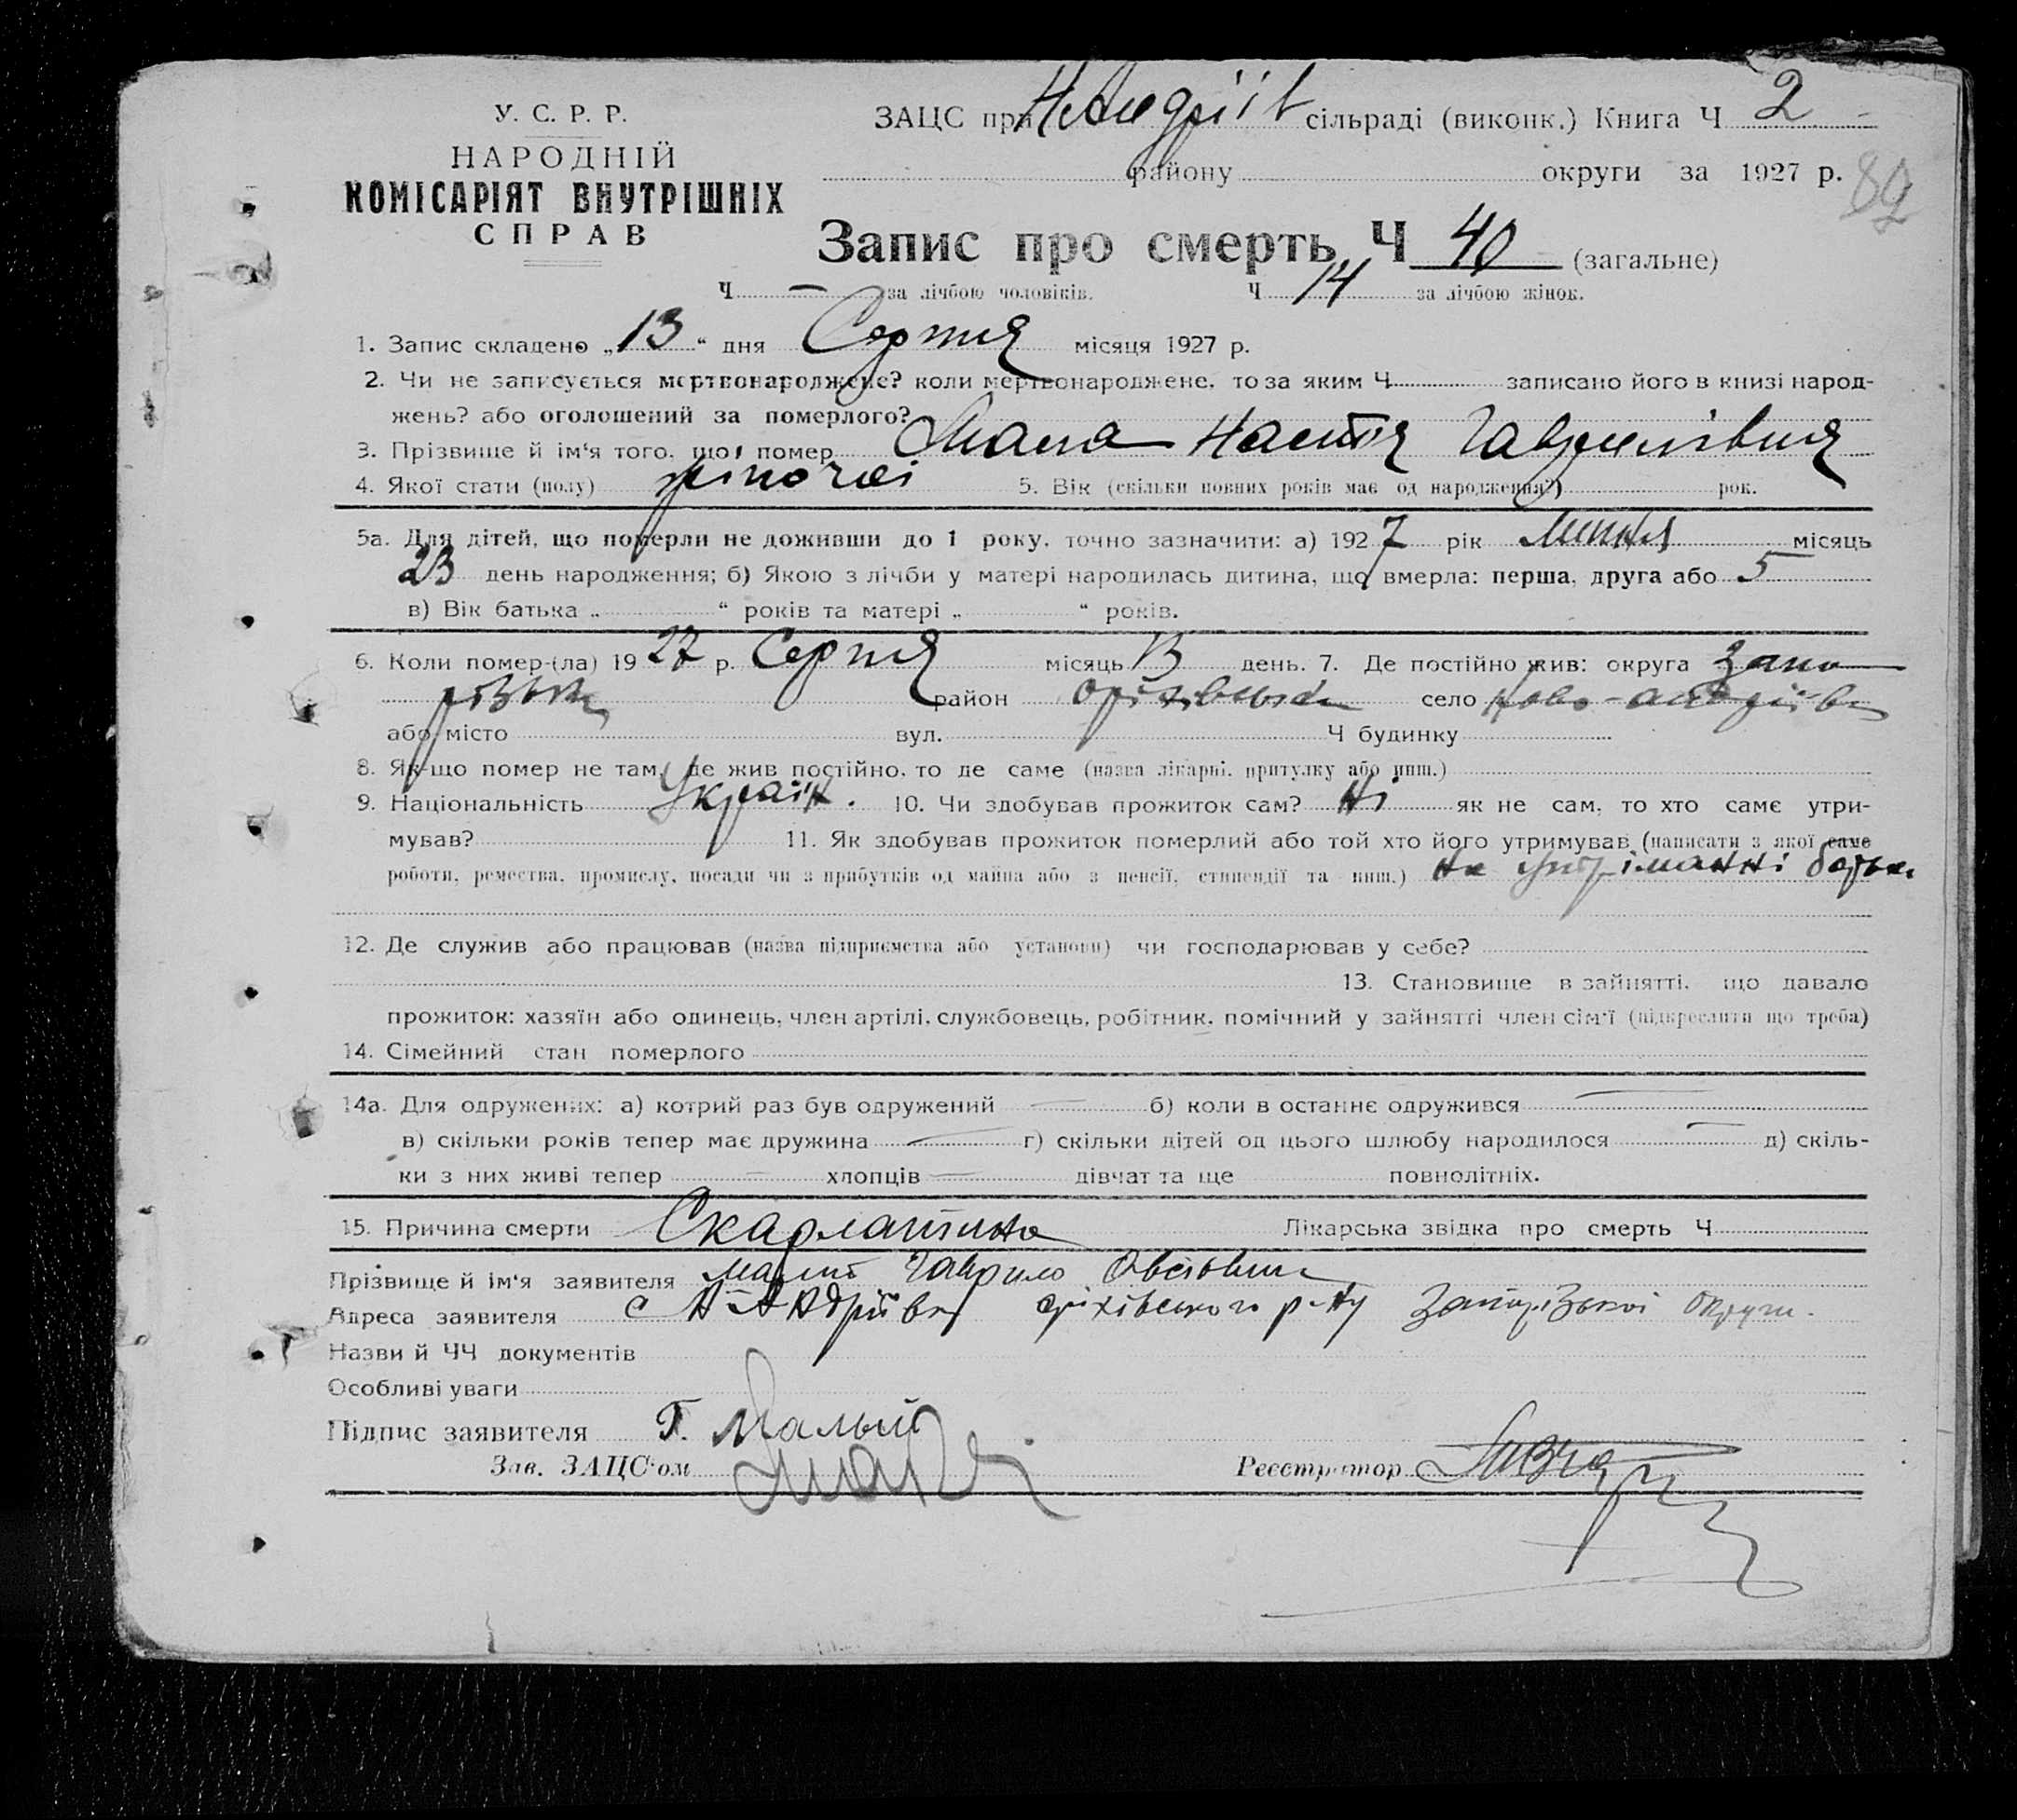 У. С. Р. Р.
НАРОДНІЙ
КОМІСАРІЯТ ВНУТРІШНІХ
СПРАВ
ЗАЦС при Н Андріів сільраді (виконк.) Книга Ч 2
району округи за 1927 р. 89
Запис про смерть Ч 40 (загальне)
Ч — за лічбою чоловіків. Ч 14 за лічбою жінок.
1. Запис складено „13“ дня Серпня місяця 1927 р.
2. Чи не записується мертвонароджене? коли мертвонароджене, то за яким Ч записано його в книзі народ-
жень? або оголошений за померлого?
3. Прізвище й ім'я того, що помер Мала Настя Гаврилівня
4. Якої стати (полу) жіночої 5. Вік (скільки повних років має од народження?) рок.
5а. Для дітей, що померли не доживши до 1 року, точно зазначити: а) 1927 рік Липня місяць
23 день народження; б) Якою з лічби у матері народилась дитина, що вмерла: перша, друга або 5
в) Вік батька „ “ років та матері „ “ років.
6. Коли помер-(ла) 1927 р. Серпня місяць 13 день. 7. Де постійно жив: округа Запо
різька район Оріхівська село Ново-андріівка
або місто вул. Ч будинку
8. Як-що помер не там, де жив постійно, то де саме (назва лікарні, притулку або инш.)
9. Національність Україн. 10. Чи здобував прожиток сам? Ні як не сам, то хто саме утри-
мував? 11. Як здобував прожиток померлий або той хто його утримував (написати з якої саме
роботи, ремества, промислу, посади чи з прибутків од майна або з пенсії, стипендії та инш.) На утріманні батька
12. Де служив або працював (назва підприємства або установи) чи господарював у себе?
13. Становище в зайнятті, що давало
прожиток: хазяїн або одинець, член артілі, службовець, робітник, помічний у зайнятті член сім'ї (підкреслити що треба)
14. Сімейний стан померлого
14а. Для одружених: а) котрий раз був одружений — б) коли в останнє одружився —
в) скільки років тепер має дружина — г) скільки дітей од цього шлюбу народилося — д) скіль-
ки з них живі тепер — хлопців — дівчат та ще повнолітніх.
15. Причина смерти Скарлатина Лікарська звідка про смерть Ч
Прізвище й ім'я заявителя Малий Гаврило Овсіович
Адреса заявителя с Н-Андріівка Оріхівського р-ну Запорізької Округи.
Назви й ЧЧ документів
Особливі уваги
Підпис заявителя Г. Малый
Зав. ЗАЦС'ом
Реєстратор